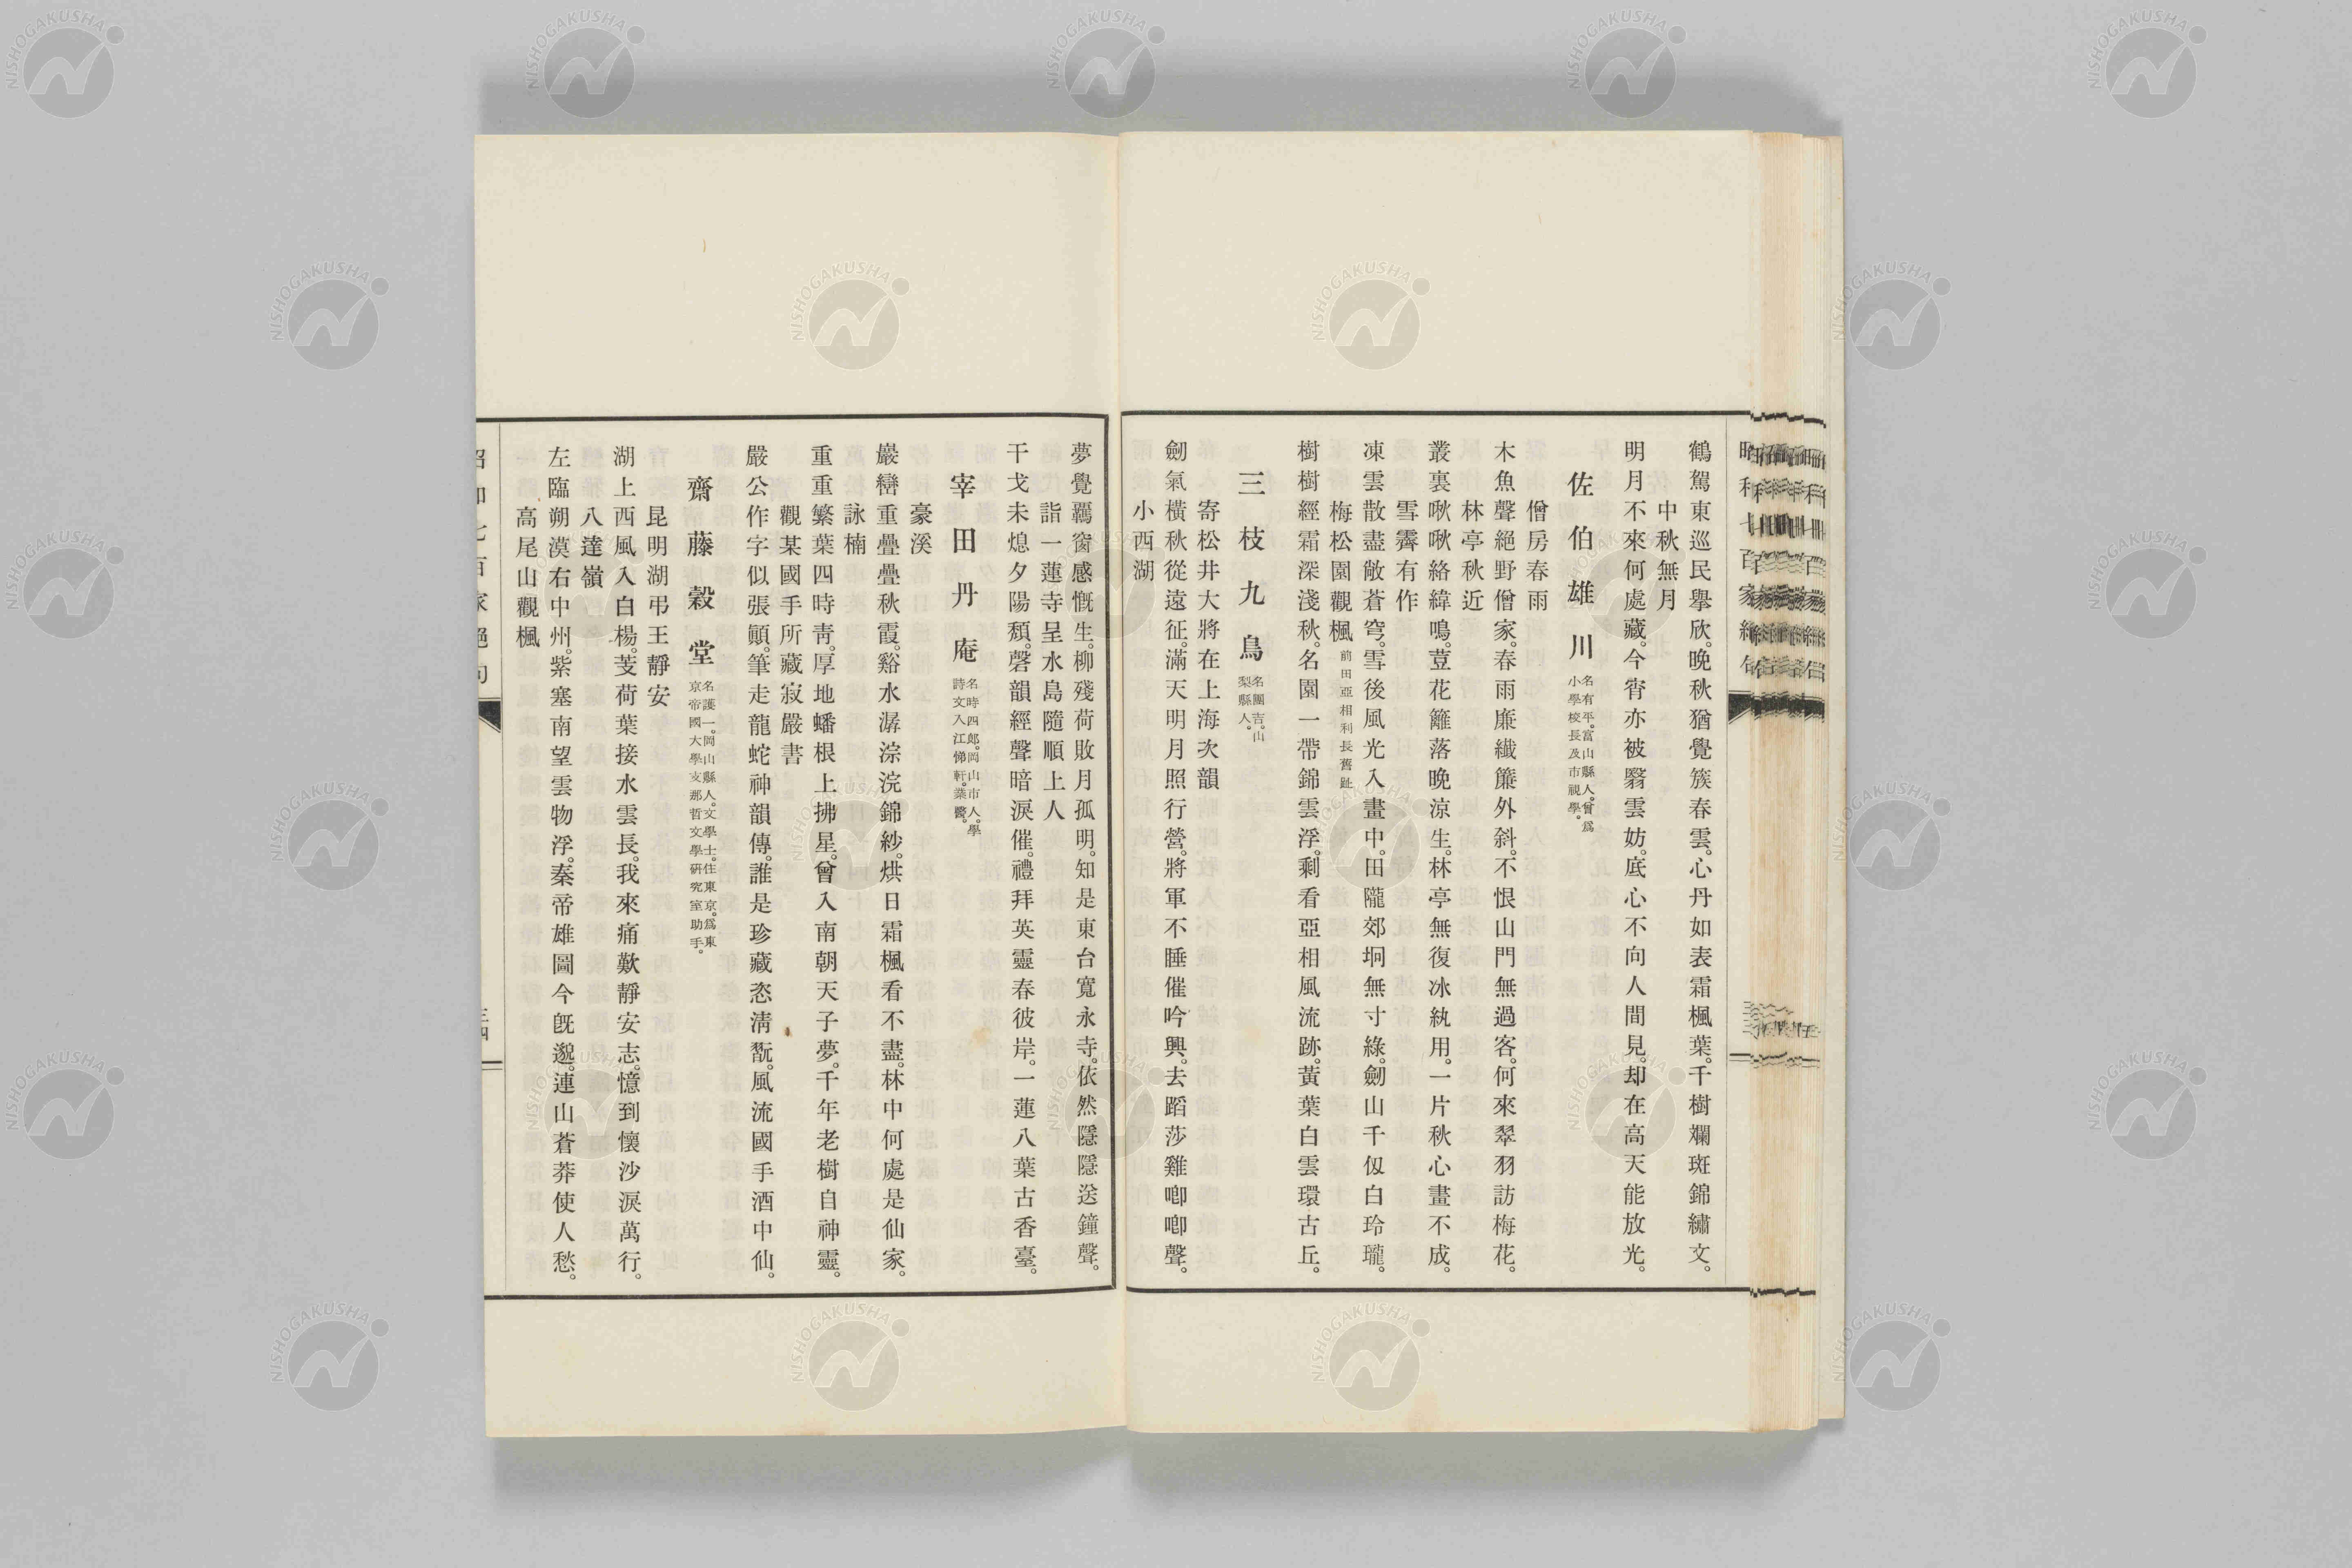 鶴駕東巡民擧欣。晚秋猶覺簇春雲。心丹如表霜楓葉。千樹斕斑錦繡文。
中秋無月
明月不來何處藏。今宵亦被翳雲妨。底心不向人間見。却在高天能放光。
佐伯雄川
名有平。富山縣人。曾爲
小學校長及市視學。
僧房春雨
木魚聲絕野僧家。春雨廉纖簾外斜。不恨山門無過客。何來翠羽訪梅花。
林亭秋近
叢裏啾啾絡緯鳴。荳花籬落晚涼生。林亭無復冰紈用。一片秋心畫不成。
雪霽有作
凍雲散盡敞蒼穹。雪後風光入畫中。田隴郊坰無寸綠。劒山千仭白玲瓏。
梅松園觀楓
前田亞相利長舊趾
樹樹經霜深淺秋。名園一帶錦雲浮。剩看亞相風流跡。黃葉白雲環古丘。
三枝九鳥
名團吉。山
梨縣人。
寄松井大將在上海次韻
劒氣橫秋從遠征。滿天明月照行營。將軍不睡催吟興。去蹈莎雞喞喞聲。
小西湖
夢覺覊窗感慨生。柳殘荷敗月孤明。知是東台寬永寺。依然隱隱送鐘聲。
詣一蓮寺呈水島隨順上人
干戈未熄夕陽頹。磬韻經聲暗淚催。禮拜英靈春彼岸。一蓮八葉古香臺。
宰田丹庵
名時四郎。岡山市人。學
詩文入江悌軒。業醫。
豪溪
巖巒重疊疊秋霞。谿水潺淙浣錦紗。烘日霜楓看不盡。林中何處是仙家。
詠楠
重重繁葉四時靑。厚地蟠根上拂星。曾入南朝天子夢。千年老樹自神靈。
觀某國手所藏寂嚴書
嚴公作字似張顚。筆走龍蛇神韻傳。誰是珍藏恣淸翫。風流國手酒中仙。
齋藤穀堂
名護一。岡山縣人。文學士。住東京。爲東
京帝國大學支那哲文學研究室助手。
昆明湖弔王靜安
湖上西風入白楊。芰荷葉接水雲長。我來痛歎靜安志。憶到懷沙淚萬行。
八達嶺
左臨朔漠右中州。紫塞南望雲物浮。秦帝雄圖今旣邈。連山蒼莽使人愁。
高尾山觀楓